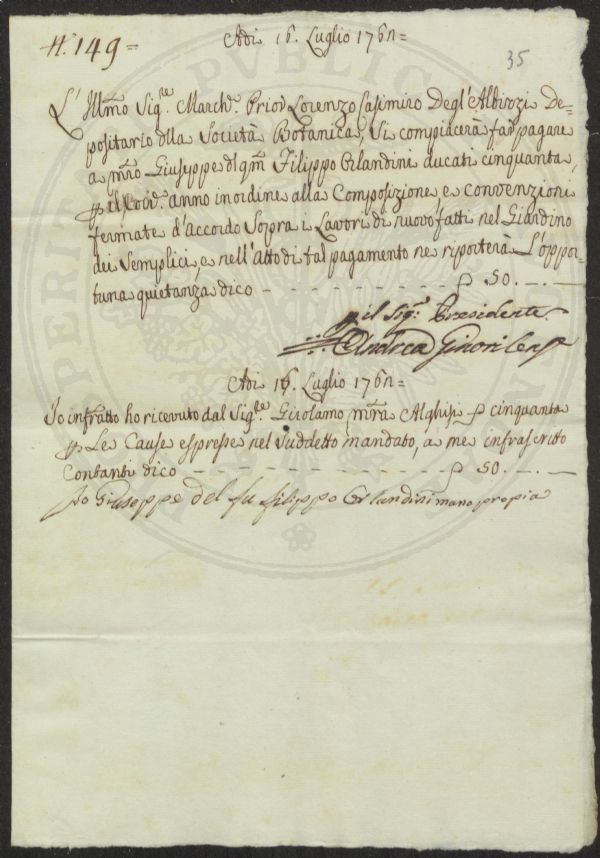 N.° 149 =
Adi 16. Luglio 176 =
35
L' Illmo Sig.re March.e Prior Lorenzo Casimiro Degl'Albizzi De=
positario dlla Società Botanica, Si compiacerà far pagare
a mro Giuseppe dl qm Filippo Orlandini ducati cinquanta,
anno in ordine alla Composizione, e convenzioni
fermate d'accordo Sopra i Lavori di nuovo fatti nel Giardino
dei Semplici, e nell'Atto di tal pagamento ne riporterà L'oppor=
tuna quietanza dico - - - - - - 50. - . -
p il Sig.r Presidente
Andrea Ginori
Adi 16. Luglio 176 =
Io infratto ho ricevuto dal Sig.re Girolamo mria Alghisi cinquanta
p Le Cause espresse nel Suddetto mandato, a me infrascritto
Contanti dico - - - - - - 50. - . -
Io Giuseppe del fu filippo Orlandini mano propia
PROSPERITAS PVBLICA